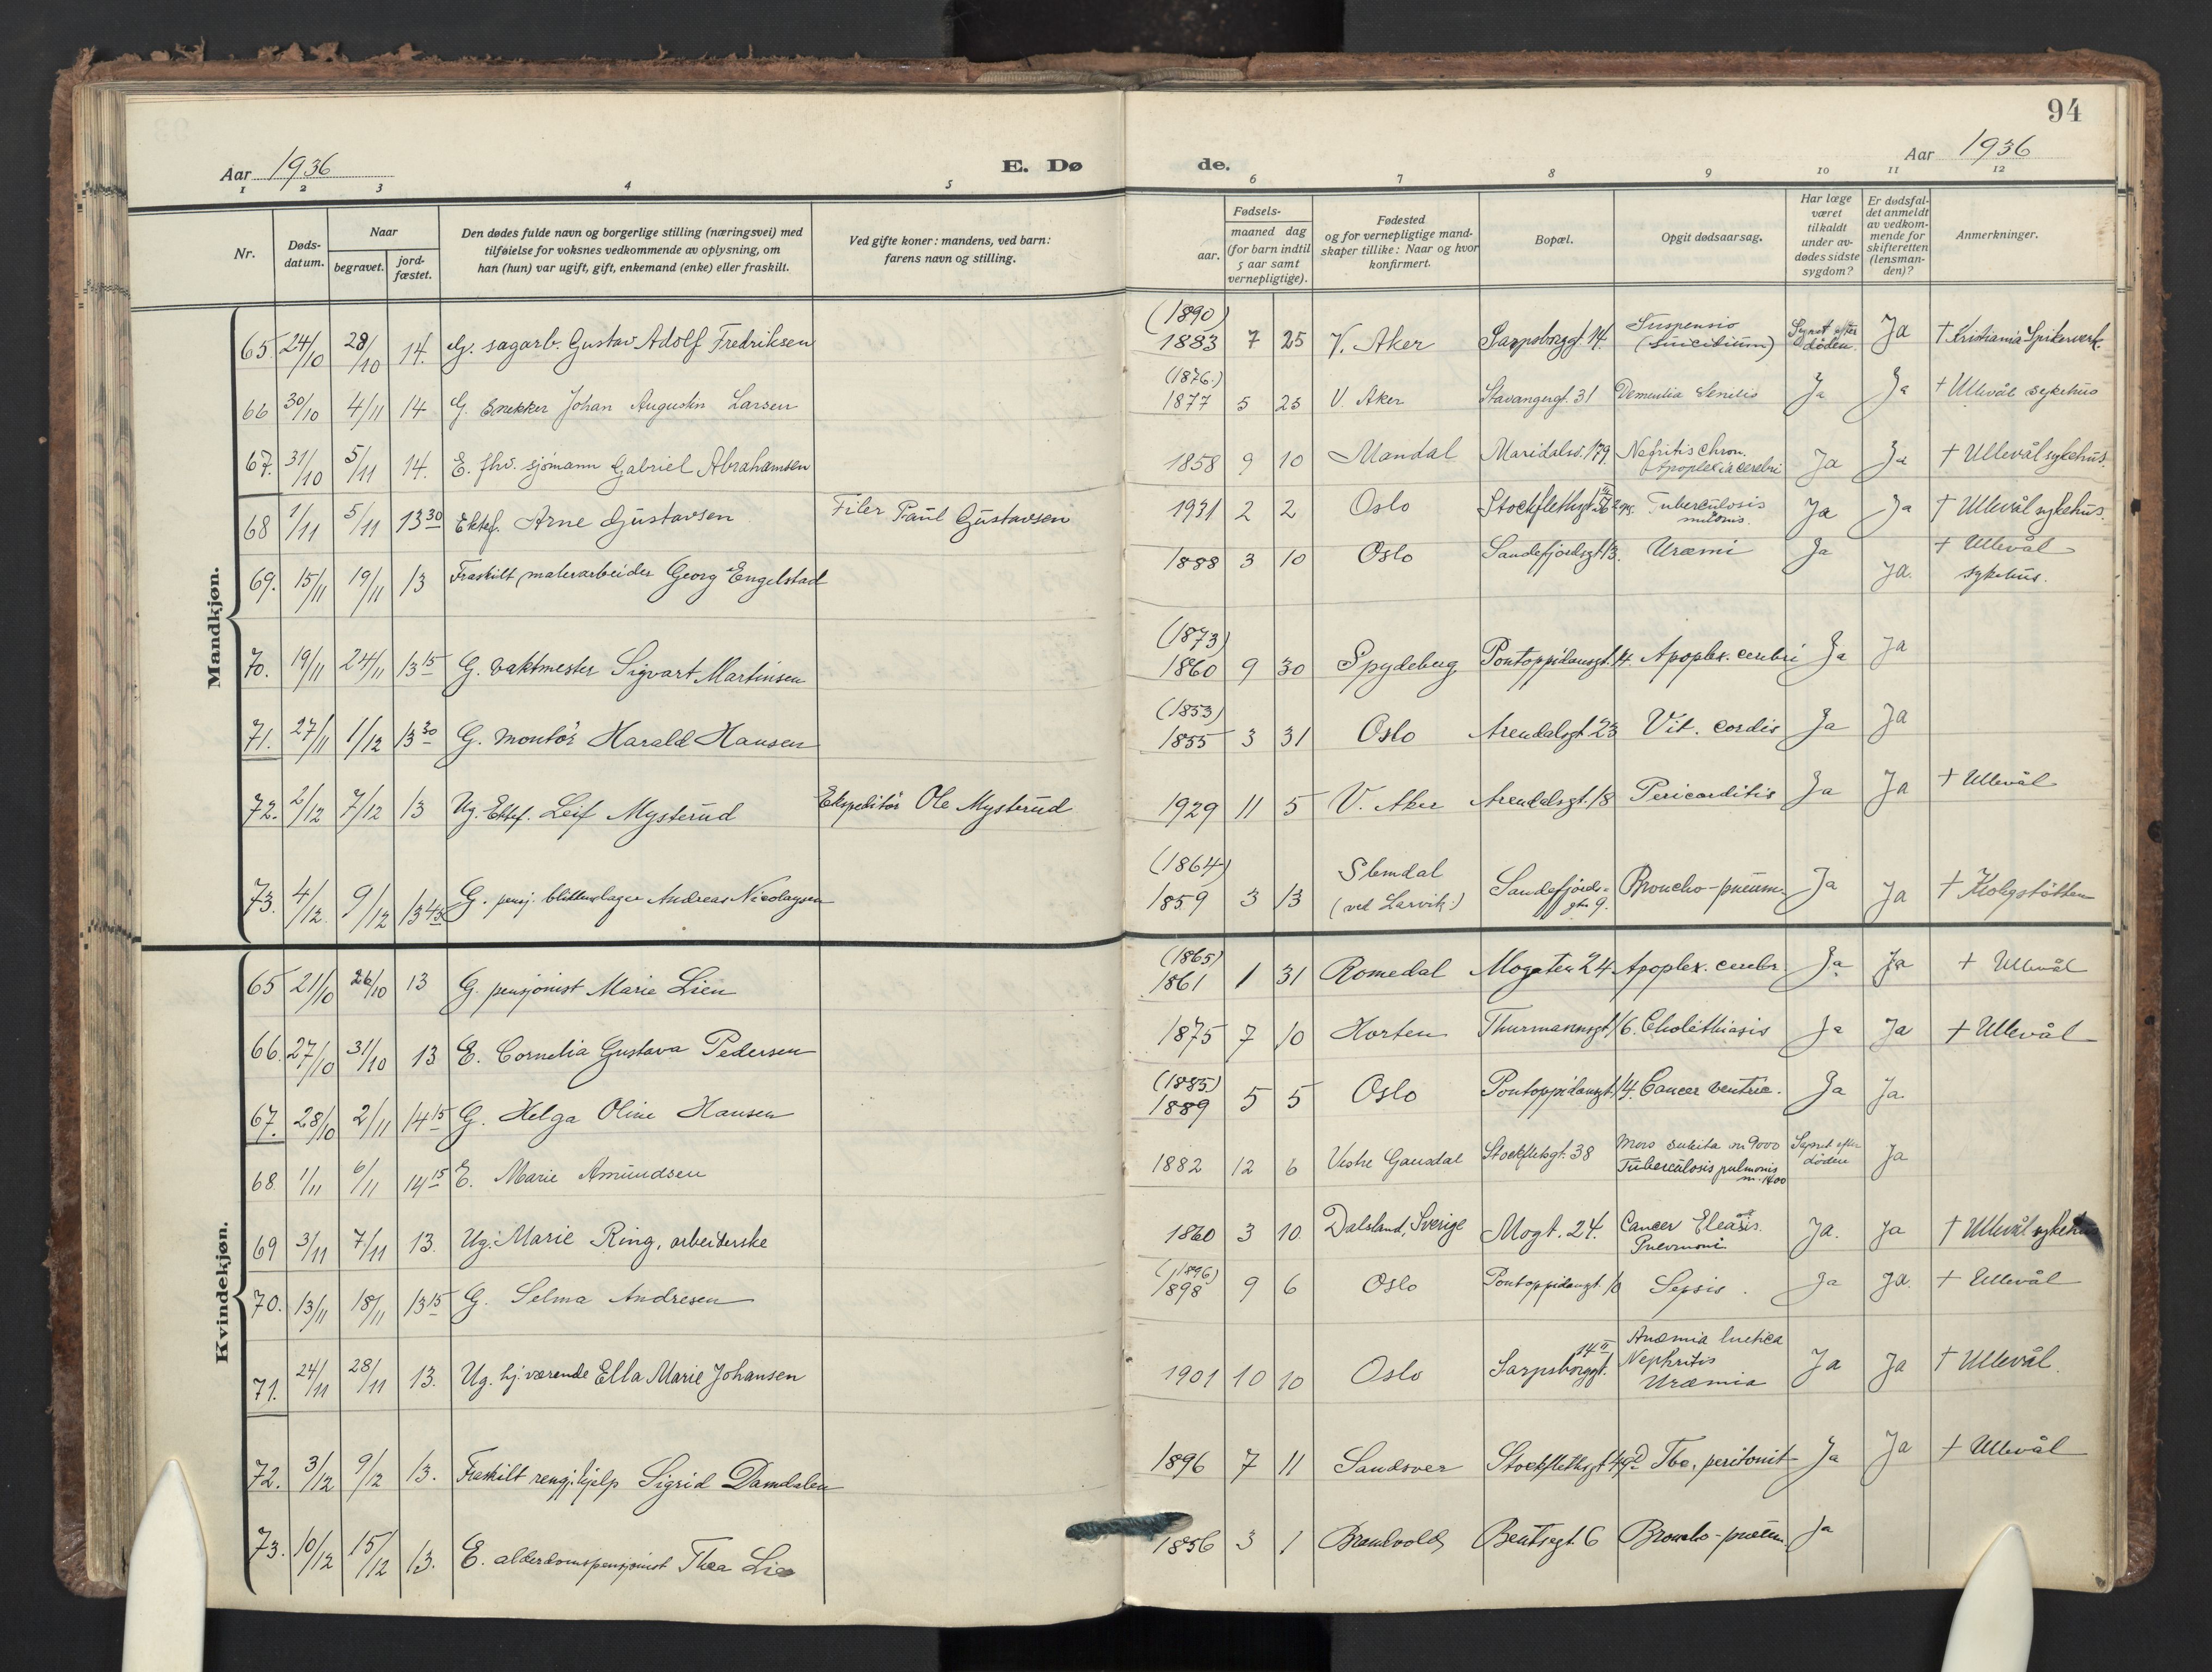 94
Aar 1936
E. Dø
de.
Aar 1936
1 2 3 4 5 6 7 8 9 10 11 12
Nr.
Døds-
datum.
Naar
begravet.
jord-
fæstet.
Den dødes fulde navn og borgerlige stilling (næringsvei) med
tilføielse for voksnes vedkommende av oplysning, om
han (hun) var ugift, gift, enkemand (enke) eller fraskilt.
Ved gifte koner: mandens, ved barn:
farens navn og stilling.
Fødsels-
aar.
maaned dag
(for barn indtil
5 aar samt
vernepligtige).
Fødested
og for vernepligtige mand-
skaper tillike: Naar og hvor
konfirmert.
Bopæl.
Opgit dødsaarsag.
Har læge
været
tilkaldt
under av-
dødes sidste
sygdom?
Er dødsfal-
det anmeldt
av vedkom-
mende for
skifteretten
(lensman-
den)?
Anmerkninger.
Mandkjøn.
(1890)
65. 24/10 28/10 14. G. sagarb. Gustav Adolf Fredriksen 1883 7 25 V. Aker Sarpsborggt. 14. Suspensio (Suicidium) Synet efter døden. Ja † Kristiania Spikerverk.
(1876.)
66 30/10 4/11 14 G. Snekker Johan Augustin Larsen 1877 5 25 V. Aker Stavangergt. 31 Dementia Senilis Ja Ja † Ullevål sykehus
67. 31/10 5/11 14. E. fhv. sjømann Gabriel Abrahamsen 1858 9 10 Mandal Maridalsv. 179. Nefritis chron. Apoplexia cerebri Ja Ja † Ullevål sykehus.
68 1/11 5/11 13 30 Ektef. Arne Gustavsen Filer Paul Gustavsen 1931 2 2 Oslo Stockflethsgt. Tuberculosis Ja Ja † Ullevål sykehus.
69. 15/11 19/11 13 Fraskilt malerarbeider Georg Engelstad 1888 3 10 Oslo Sandefjordsgt. 13. Uræmi Ja Ja. † Ullevål sykehus.
(1873)
70. 19/11 24/11 13 15 G. vaktmester Sigvart Martinsen 1860 9 30 Spydeberg Pontoppidansgt. 14. Apoplex. cerebri Ja Ja
(1853)
71. 27/11 1/12 13 30 G. montør Harald Hansen 1855 3 31 Oslo Arendalsgt. 23 Vit. cordis Ja Ja
72. 2/12 7/12 13 Ug. Ektef. Leif Mysterud Ekspeditør Ole Mysterud 1929 11 5 V. Aker Arendalsgt. 18 Pericarditis Ja Ja † Ullevål
(1864)
73. 4/12 9/12 13 45 G. pensj. blikkenslager Andreas Nicolaysen 1859 3 13 Slemdal (ved Larvik.) Sandefjords-gtn 9. Broncho-pneum. Ja Ja †
Kvindekjøn.
(1865)
65 21/10 26/10 13 G. pensjonist Marie Lien 1861 1 31 Romedal Mogaten 24 Apoplex. cerebr. Ja Ja † Ullevål
66. 27/10 31/10 13 E. Cornelia Gustava Pedersen 1875 7 10 Horten Thurmannsgt. 16. Cholethiasis Ja Ja † Ullevål
(1885)
67. 28/10 2/11 14 15 G. Helga Oline Hansen 1889 5 5 Oslo Pontoppidansgt. 14. Cancer ventric. Ja Ja.
68. 1/11 6/11 14 15 E. Marie Amundsen 1882 12 6 Vestre Gausdal Stockflethsgt. 38 Mors subita m 9000 Tuberculosis pulmonis m. 1400 Synet efter døden Ja
69 3/11 7/11 13. Ug. Marie Ring, arbeiderske 1860 3 10 Dalsland, Sverige Mogt. 24. Cancer Pneumoni Ja. Ja † Ullevål sykehus
(1896)
70. 13/11 18/11 13 15 G. Selma Andresen 1898 9 6 Oslo Pontoppidansgt. 10 Sepsis. Ja Ja. † Ullevål
71. 24/11 28/11 13. Ug. hj. værende Ella Marie Johansen 1901 10 10 Oslo Sarpsborggt. 14 II Anæmia luetica Nephritis Uræmia Ja Ja † Ullevål.
72. 3/12 9/12 13. Fraskilt rengj.hjelp Sigrid Damdalen 1896 7 11 Sandsver Stockflethsgt. Tbc. peritonit Ja Ja † Ullevål
73. 10/12 15/12 13. E. alderdomspensjonist Thea Lie 1856 3 1 Brandvold Bentsegt. 6 Broncho-pneum. Ja